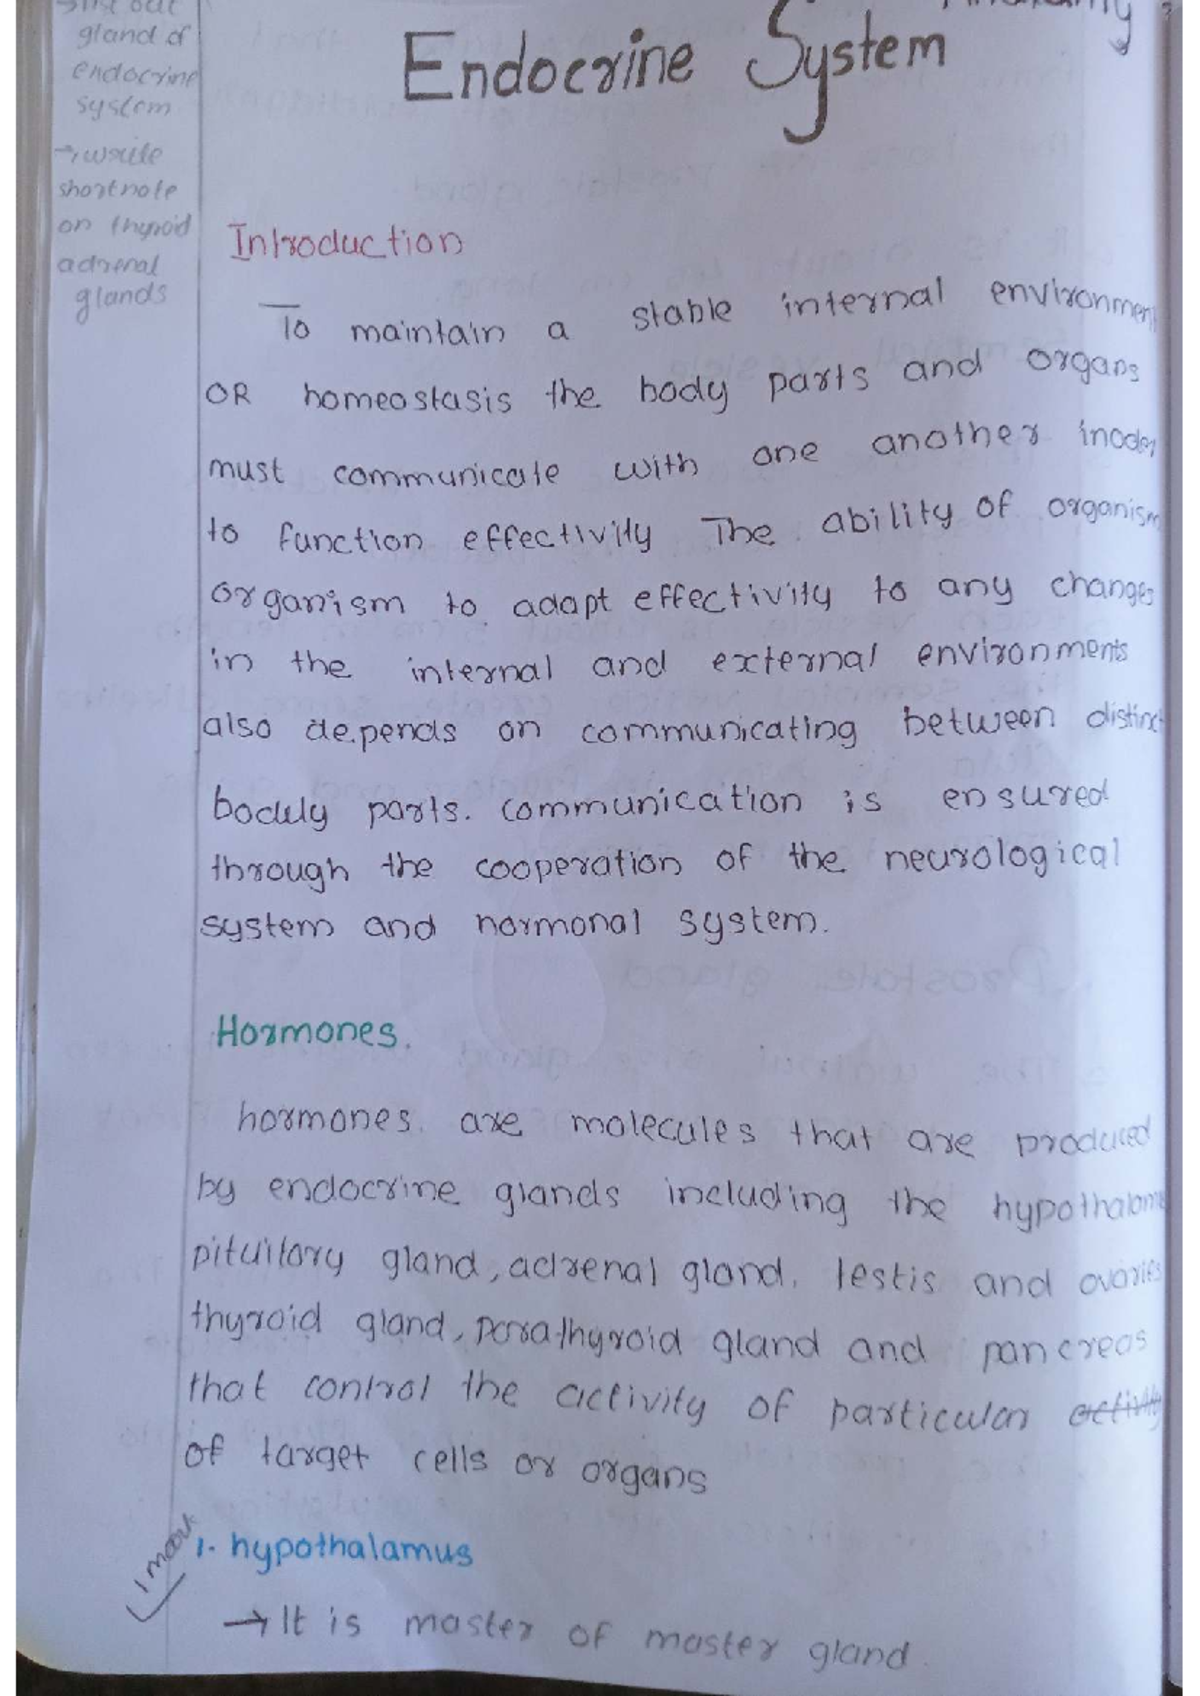 gland of
endocrine
system
→ write
shortnote
on thyroid
adrenal
glands
Endocrine System
Introduction
To maintain a stable internal environment
OR homeostasis the body parts and organs
must communicate with one another inoder
to function effectivity The ability of organism
organism to adapt effectivity to any changes
in the internal and external environments
also depends on communicating between distinct
bodily parts. communication is ensured
through the cooperation of the neurological
system and hormonal system.
Hormones.
hormones. are molecules that are produced
by endocrine glands including the
pituitary gland, adrenal gland. testis and ovaries
thyroid gland, parathyroid gland and pancreas
that control the activity of particular activity
of target cells or organs
1 mark
1. hypothalamus
→ It is master of master gland.